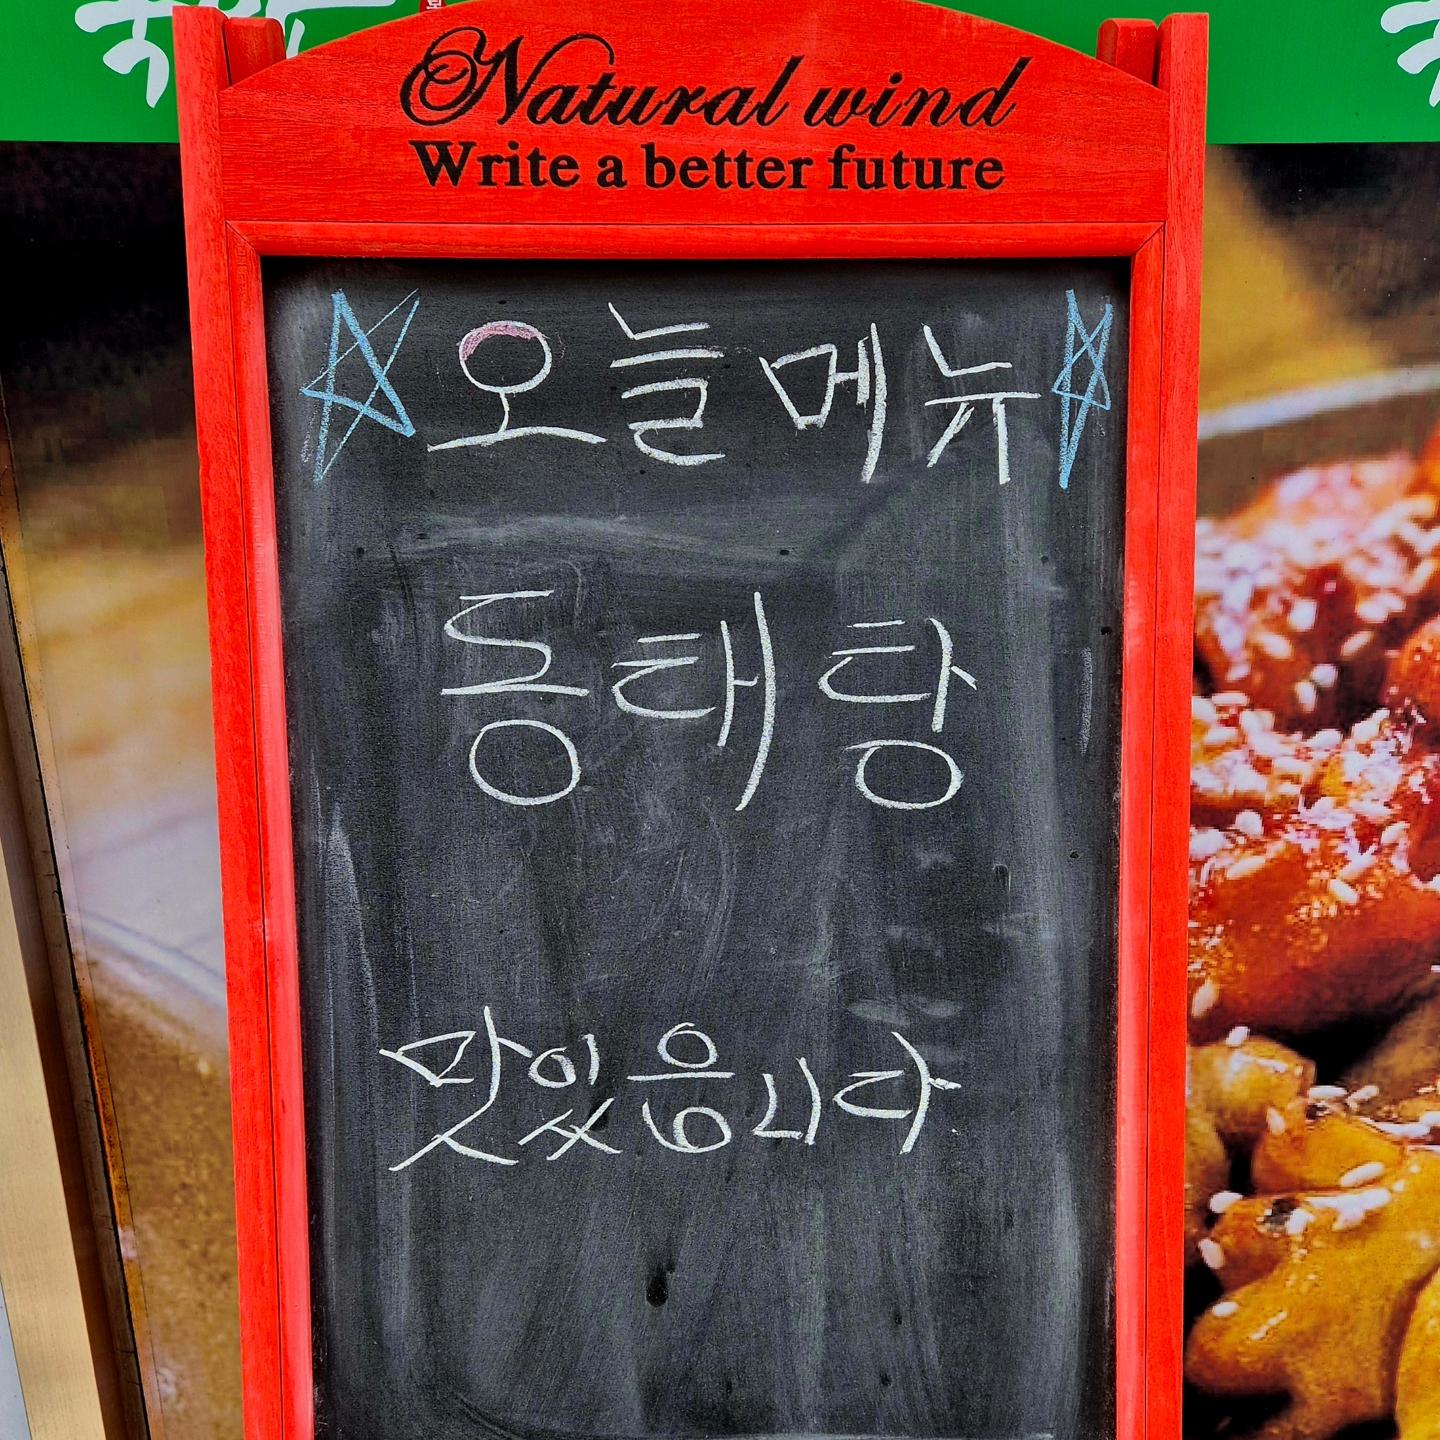 Natural wind
Write a better future
오늘메뉴
동태탕
맛있읍니다